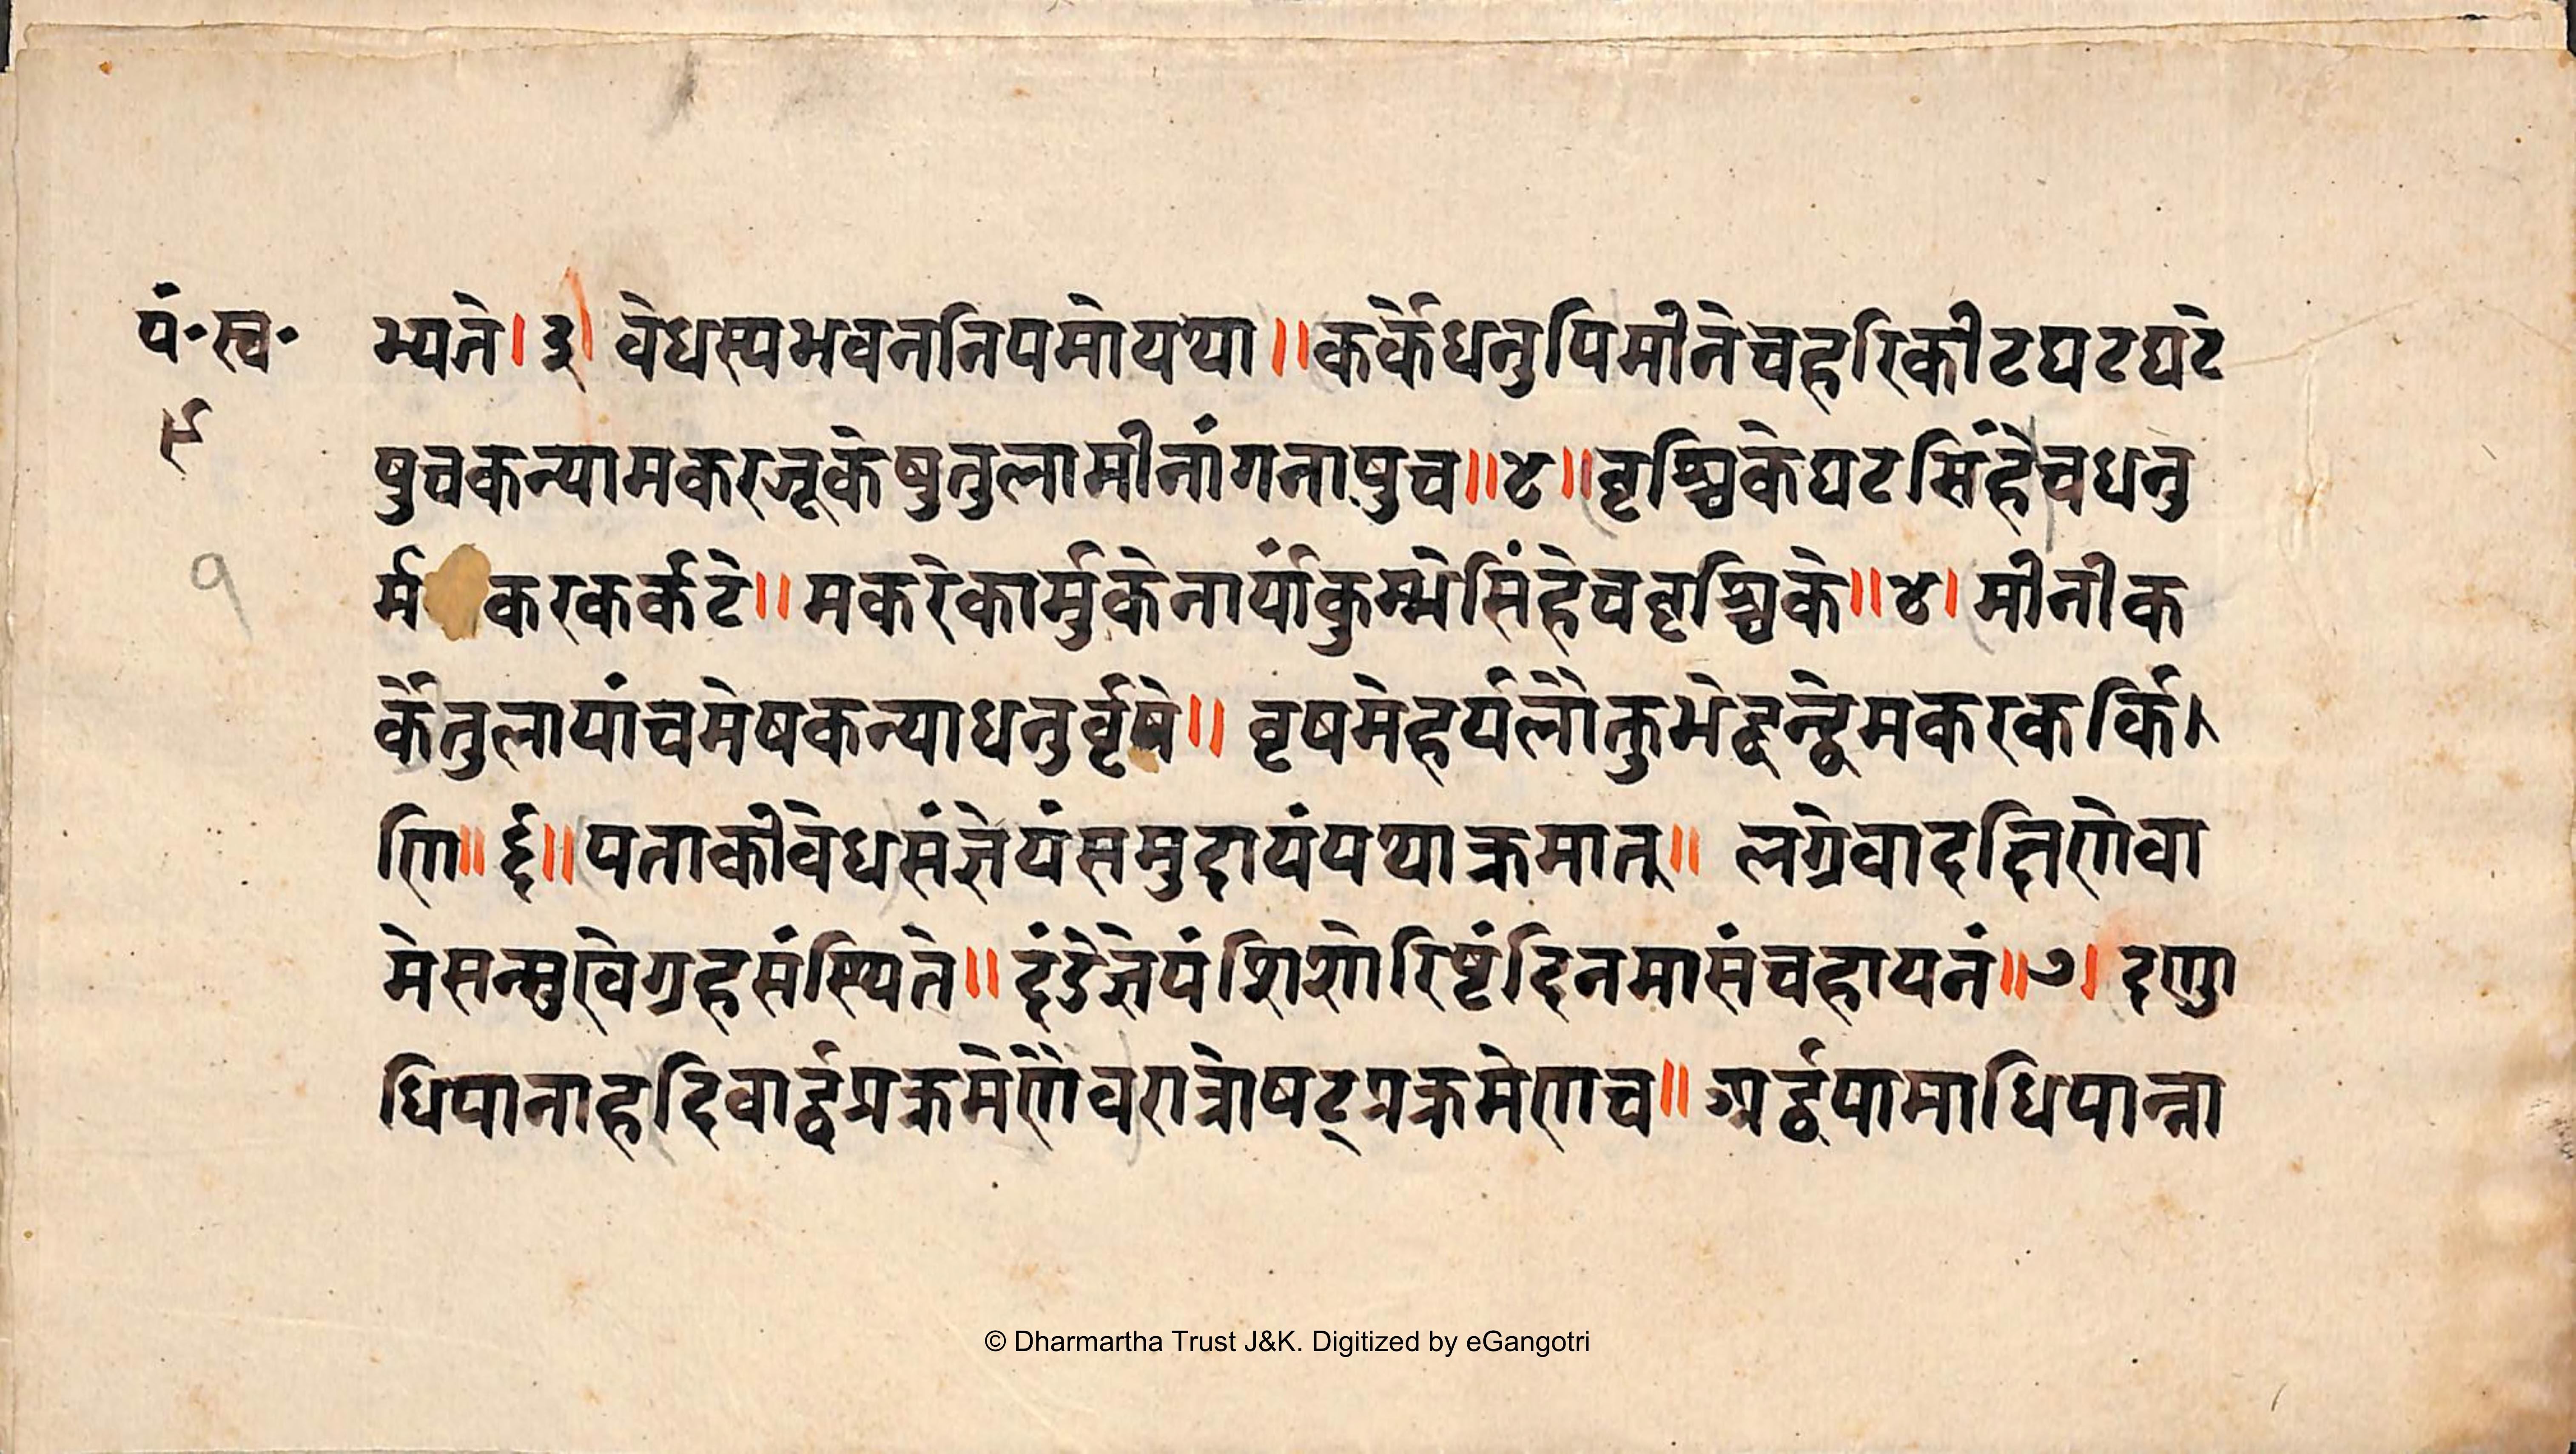 पं॰स्व॰
९
9
भ्यते। ३। वेधस्यभवननियमोयथा॥कर्केधनुषिमीनेचहरिकीटघटघटे
षुचकन्यामकरजूकेषुतुलामीनांगनाषुच॥४॥वृश्चिकेघटसिंहेचधनु
र्म करकर्कटे॥मकरेकार्मुकेनार्यांकुम्भेसिंहेचवृश्चिके॥४।मीनीक
र्केतुलायांचमेषकन्याधनुर्वृषे॥ वृषमेहर्यलौकुभेद्वन्द्वेमकरकर्कि
णि॥६॥पताकीवेधसंज्ञेयंसमुद्रायंयथाक्रमात्॥ लग्नेवादक्षिणेवा
मेसन्मुखेग्रहसंस्थिते॥दंडेज्ञेयंशिशोरिष्टंदिनमासंचहायनं॥७। दण्डा
धिपानाहदिवार्द्धप्रक्रमेणैवरात्रोषट्प्रक्रमेणच॥ अर्द्धयामाधिपान्ना
© Dharmartha Trust J&K. Digitized by eGangotri